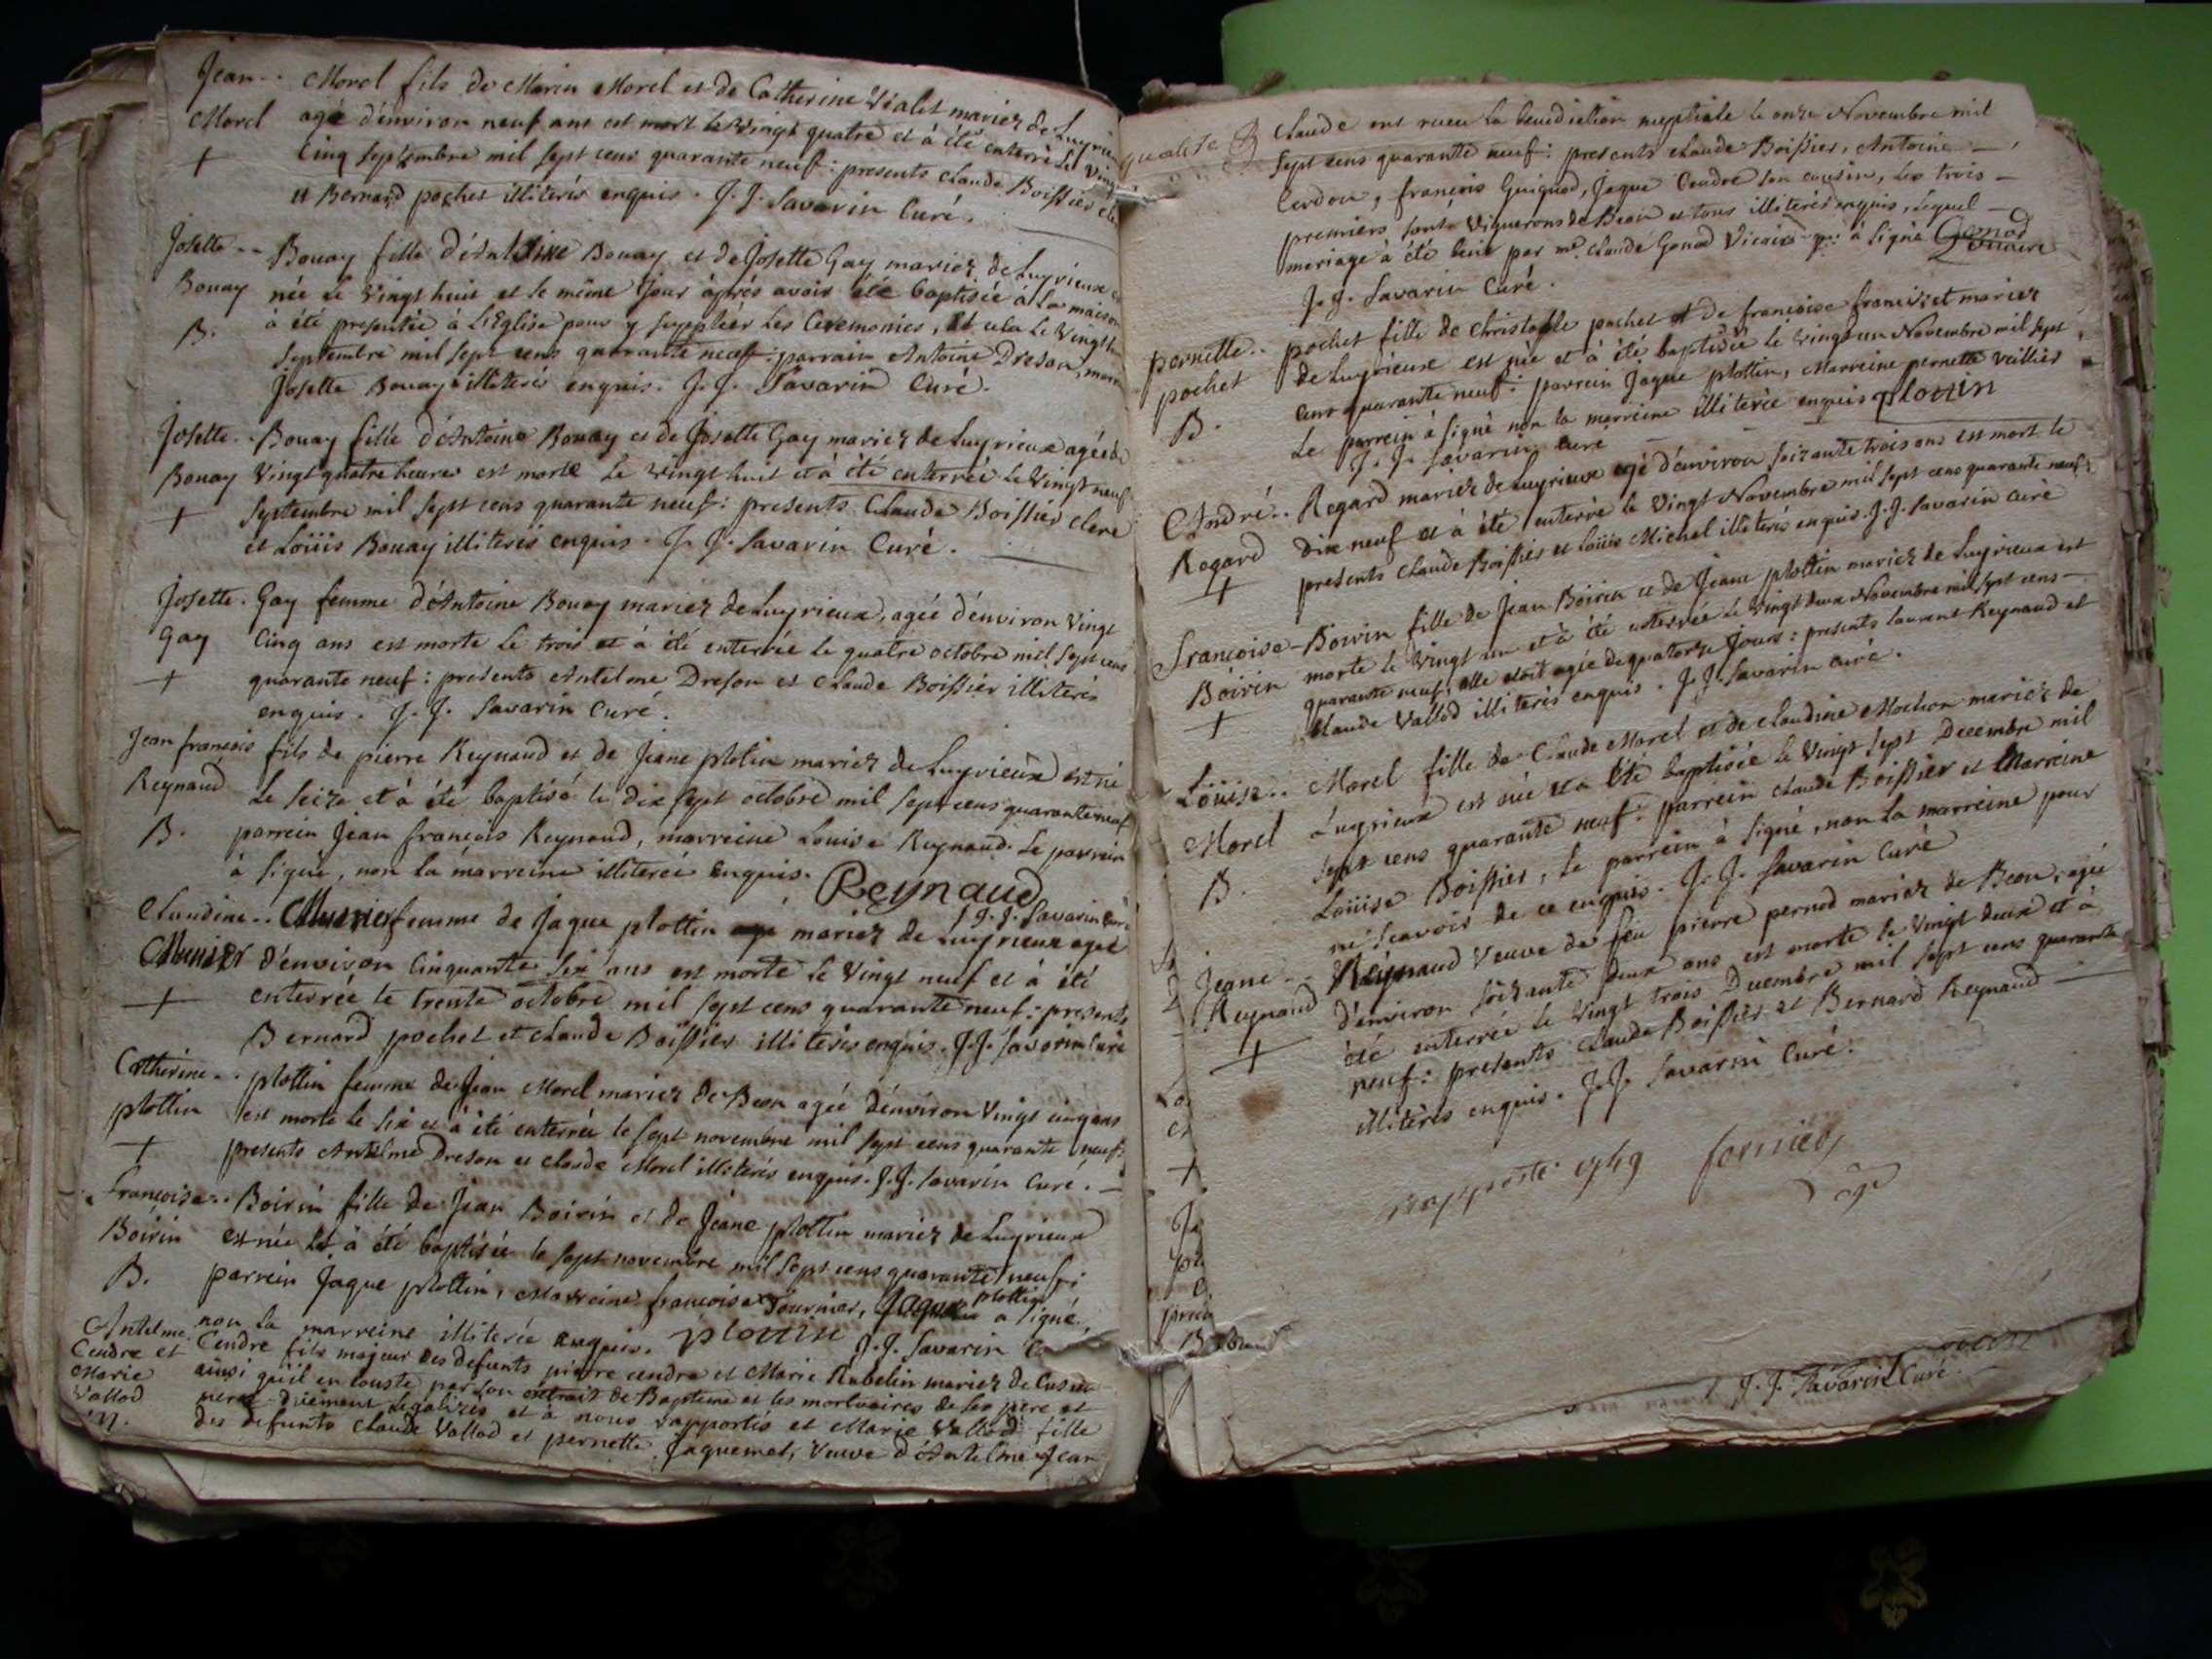 Jean.. Morel fils de Marin Morel et de Catherine Vialet mariez de Luyrieux
Morel agé d'énviron neuf ans est mort le vingt quatre et à été enterré le vingt
+ cinq septembre mil sept cens quarante neuf: presents Claude Boissier
et Bernard pochet illiterés enquis. J. J. Savarin Curé.
Josette.. Bouay fille d'Antelme Bouay et de Josette Gay mariez de Luyrieux
Bouay née le vingt huit et le même jour après avoir été baptisée à la maison
B. à été presentée à l'Eglise pour y suppléer les Ceremonies, et cela le vingt
septembre mil sept cens quarante neuf: parrain Antoine Dreson,
Josette Bouay illiterés enquis. J. J. Savarin Curé.
Josette.. Bouay fille d'Antoine Bouay et de Josette Gay mariez de Luyrieux agée de
Bouay vingt quatre heures est morte le vingt huit et à été enterrée le vingt neuf
+ septembre mil sept cens quarante neuf: presents Claude Boissier clerc
et Loüis Bouay illiterés enquis. J. J. Savarin Curé.
Josette. Gay femme d'Antoine Bouay mariez de Luyrieux, agée d'énviron vingt
Gay cinq ans est morte le trois et à été enterrée le quatre octobre mil sept cens
+ quarante neuf: presents Antelme Dreson et Claude Boissier illiterés
enquis. J. J. Savarin Curé.
Jean françois fils de pierre Reynaud et de Jeane plotin mariez de Luyrieux est né
Reynaud le seize et à été baptisé le dix sept octobre mil sept cens quarante neuf
B. parrein Jean françois Reynaud, marreine Louise Reynaud. Le parrein
à signé, non la marreine illiterée enquis. Reynaud
J. J. Savarin Curé
Claudine.. Munier femme de Jaque plottin mariez de Luyrieux agée
Munier d'énviron cinquante six ans est morte le vingt neuf et à été
+ enterrée le trente octobre mil sept cens quarante neuf: presents
Bernard pochet et Claude Boissier illiterés enquis. J. J. Savarin Curé
Catherine.. plottin femme de Jean Morel mariez de Beon agée d'énviron vingt cinq ans
plottin est morte le six et à été enterrée le sept novembre mil sept cens quarante neuf:
+ presents Antelme Dreson et Claude Morel illiterés enquis. J. J. Savarin Curé.
Françoise.. Boirin fille de Jean Boirin et de Jeane plottin mariez de Luyrieux
Boirin est née et à été baptisée le sept novembre mil sept cens quarante neuf:
B. parrein Jaque plottin, Marreine françoise Fournier, Jaque plottin a signé,
non la marreine illiterée enquis. plottin J. J. Savarin
Antelme Cendre fils majeur des defunts pierre cendre et Marie Rubelin mariez de
Cendre et ainsi qu'il en conste par son extrait de Baptême et les mortuaires de ses pere et
Marie mere düement légalisés et à nous rapportés et Marie Vallod fille
Vallod des defunts Claude Vallod et pernette Jaquemet, veuve d'Antelme Jean
M.
Claude ont receu la benediction nuptiale le onze Novembre mil
sept cens quarante neuf: presents Claude Boissier, Antoine
Cerdon, françois Guignod, Jaque Cendre son cousin, les trois
premiers sont vignerons de Beon et tous illiterés enquis, lequel
mariage à été beni par mr. Claude Gonod Vicaire qui à signé Gonod vicaire
J. J. Savarin Curé.
pernette.. pochet fille de Christofle pochet et de françoise françiset mariez
pochet de Luyrieux est née et à été baptisée le vingt un Novembre mil sept
B. cens quarante neuf: parrein Jaque plottin, Marreine pernette vuillier
Le parrein à signé non la marreine illiterée enquis plottin
J. J. Savarin Curé
André.. Regard mariez de Luyrieux agé d'énviron soixante trois ans est mort le
Regard dix neuf et à été enterré le vingt Novembre mil sept cens quarante neuf:
+ presents Claude Boissier et Loüis Michel illiterés enquis. J. J. Savarin Curé
Françoise - Boirin fille de Jean Boirin et de Jeane plottin mariez de Luyrieux est
Boirin morte le vingt un et à été enterrée le vingt deux Novembre mil sept cens
+ quarante neuf, elle étoit agée de quatorze jours: presents laurent Reynaud et
Claude Vallod illiterés enquis. J. J. Savarin Curé.
Loüise.. Morel fille de Claude Morel et de Claudine Mochon mariez de
Morel Luyrieux est née et à été baptisée le vingt sept Decembre mil
B. sept cens quarante neuf: parrein Claude Boissier et Marreine
Loüise Boissier, le parrein à signé, non la marreine pour
ne sçavoir de ce enquis. J. J. Savarin Curé
Jeane.. Reynaud veuve de feu pierre pernod mariez de Beon, agée
Reynaud d'énviron soixante deux ans est morte le vingt deux et à
+ été enterrée le vingt trois Decembre mil sept cens quarante
neuf: presents Claude Boissier et Bernard Reynaud
illiterés enquis. J. J. Savarin Curé.
rapporté 1749
J. J. Savarin Curé.